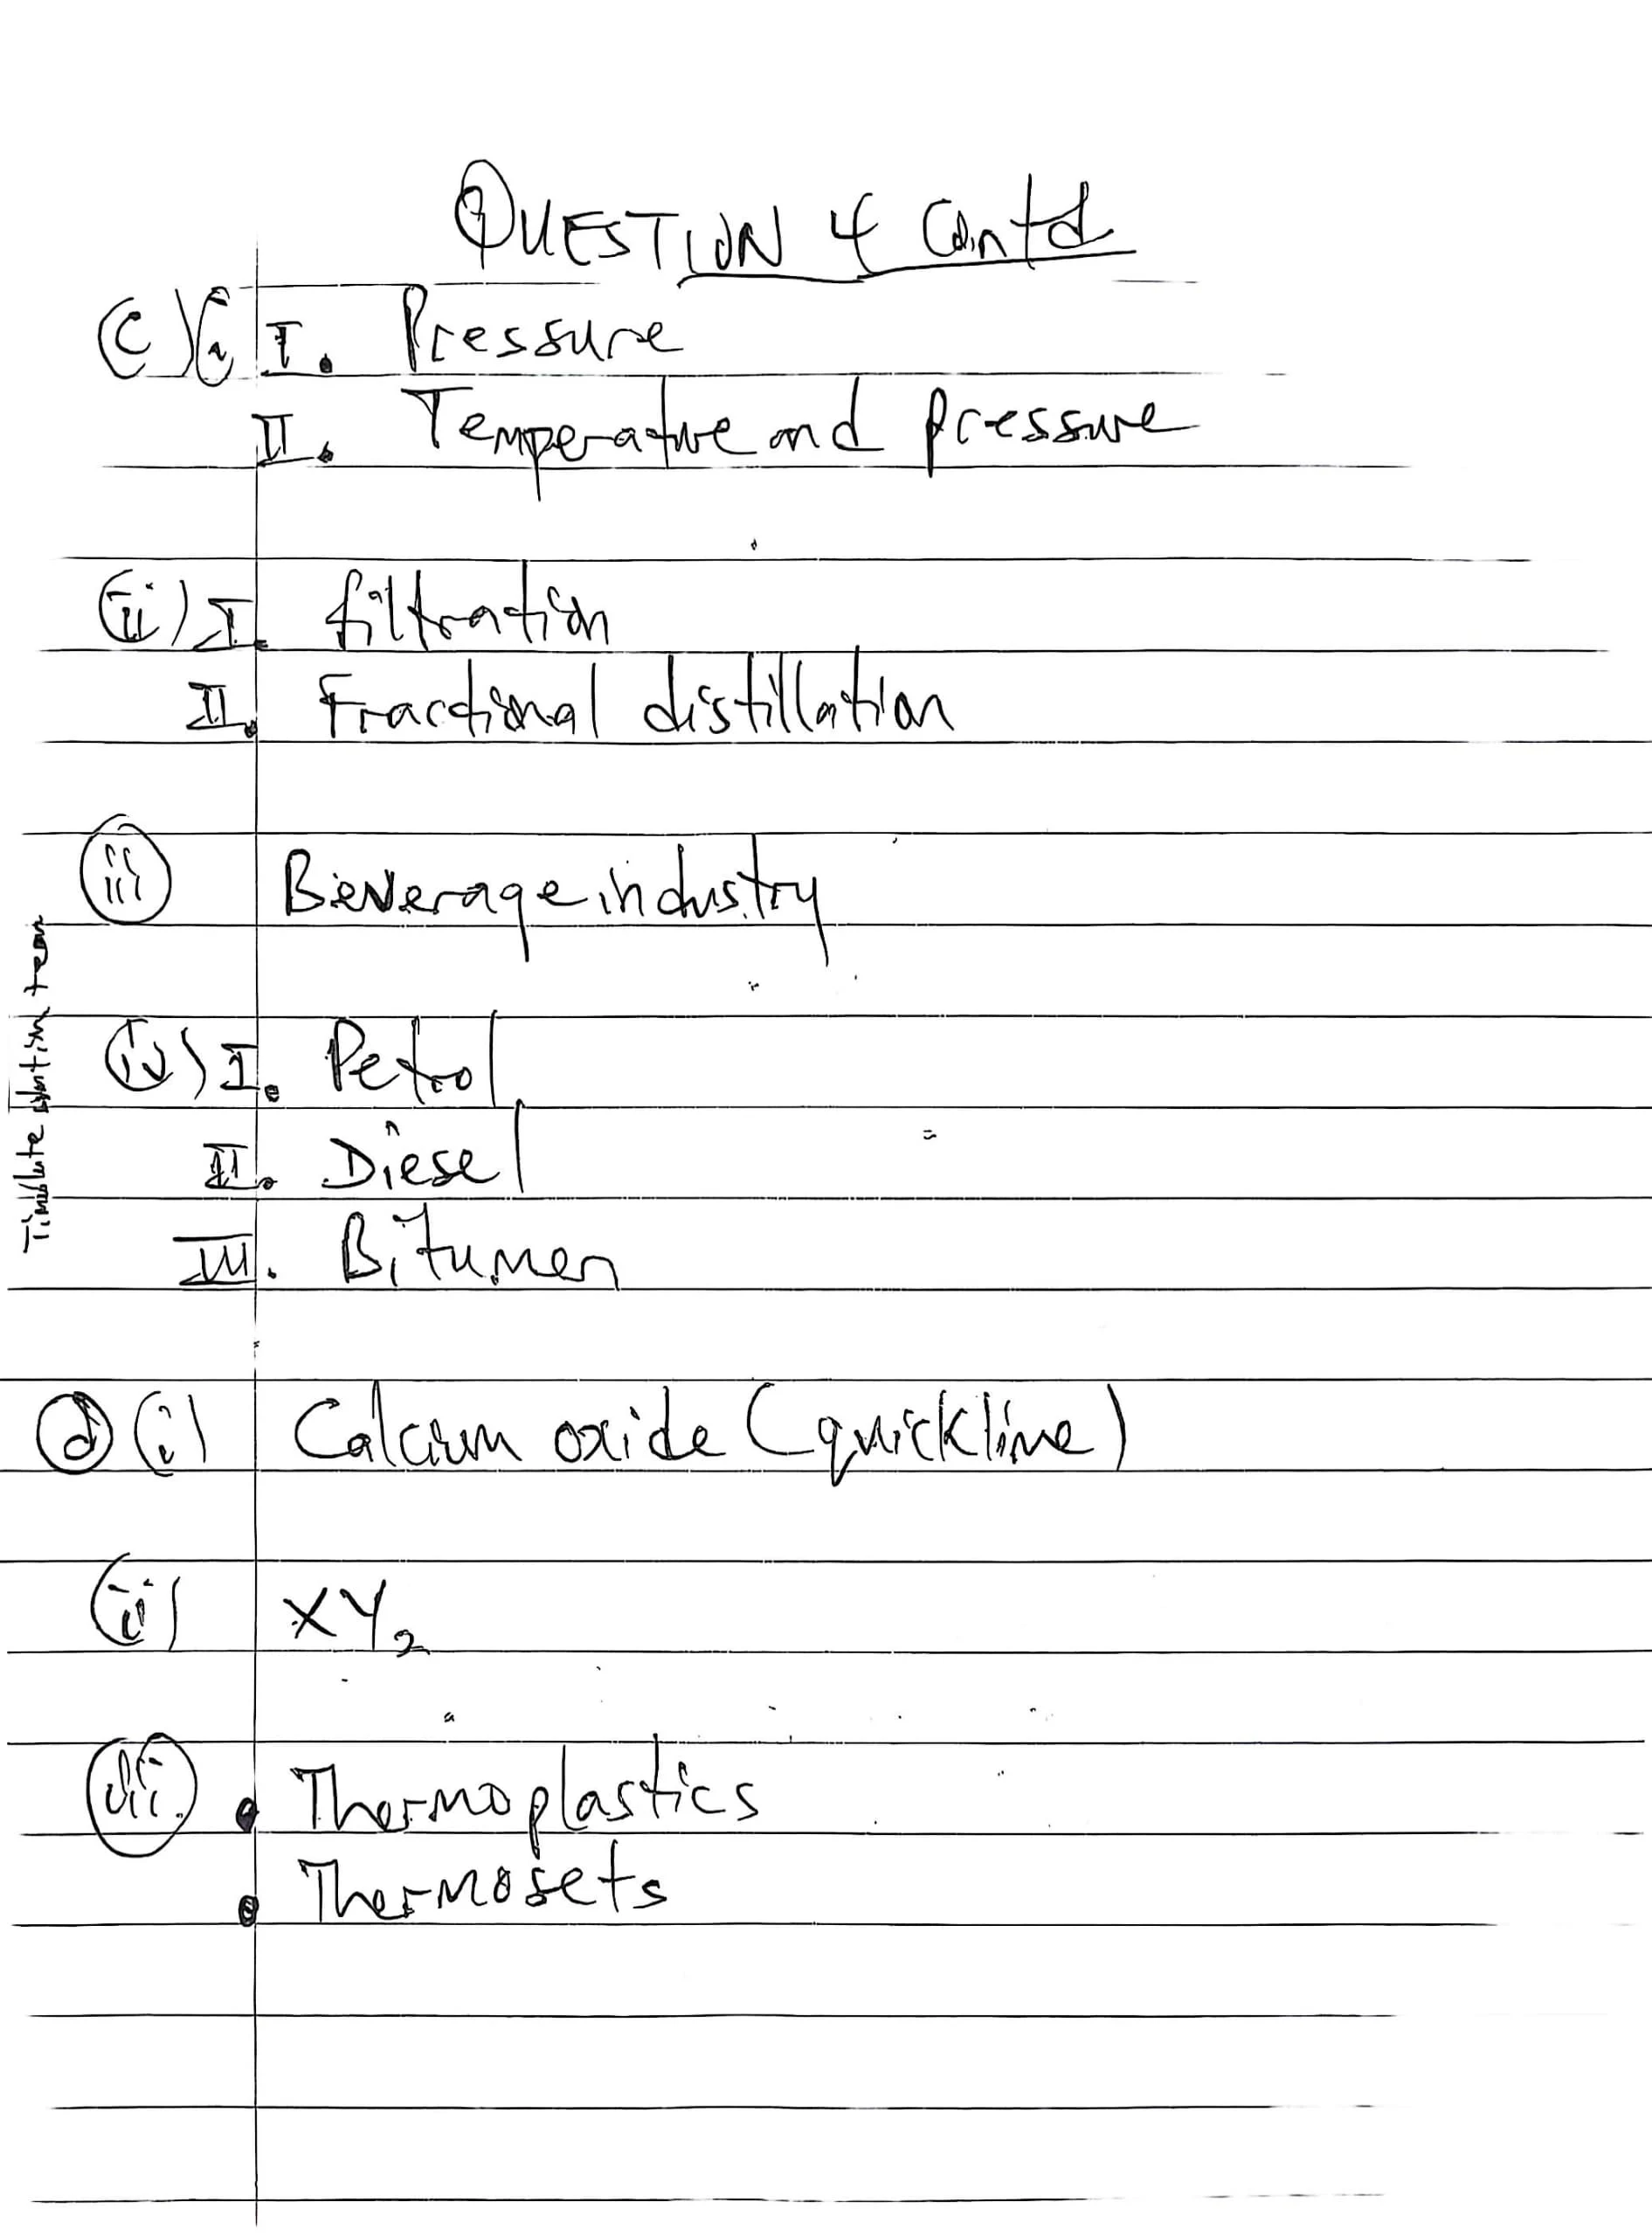 QUESTION 4 Contd
(c)(i I. Pressure
II. Temperature and pressure
(ii) I. filtration
II. Fractional distillation
(iii) Beverage industry
(iv) I. Petrol
II. Diesel
III. Bitumen
(d) (i) Calcium oxide (quicklime)
(ii) XY₂
(iii. • Thermoplastics
• Thermosets